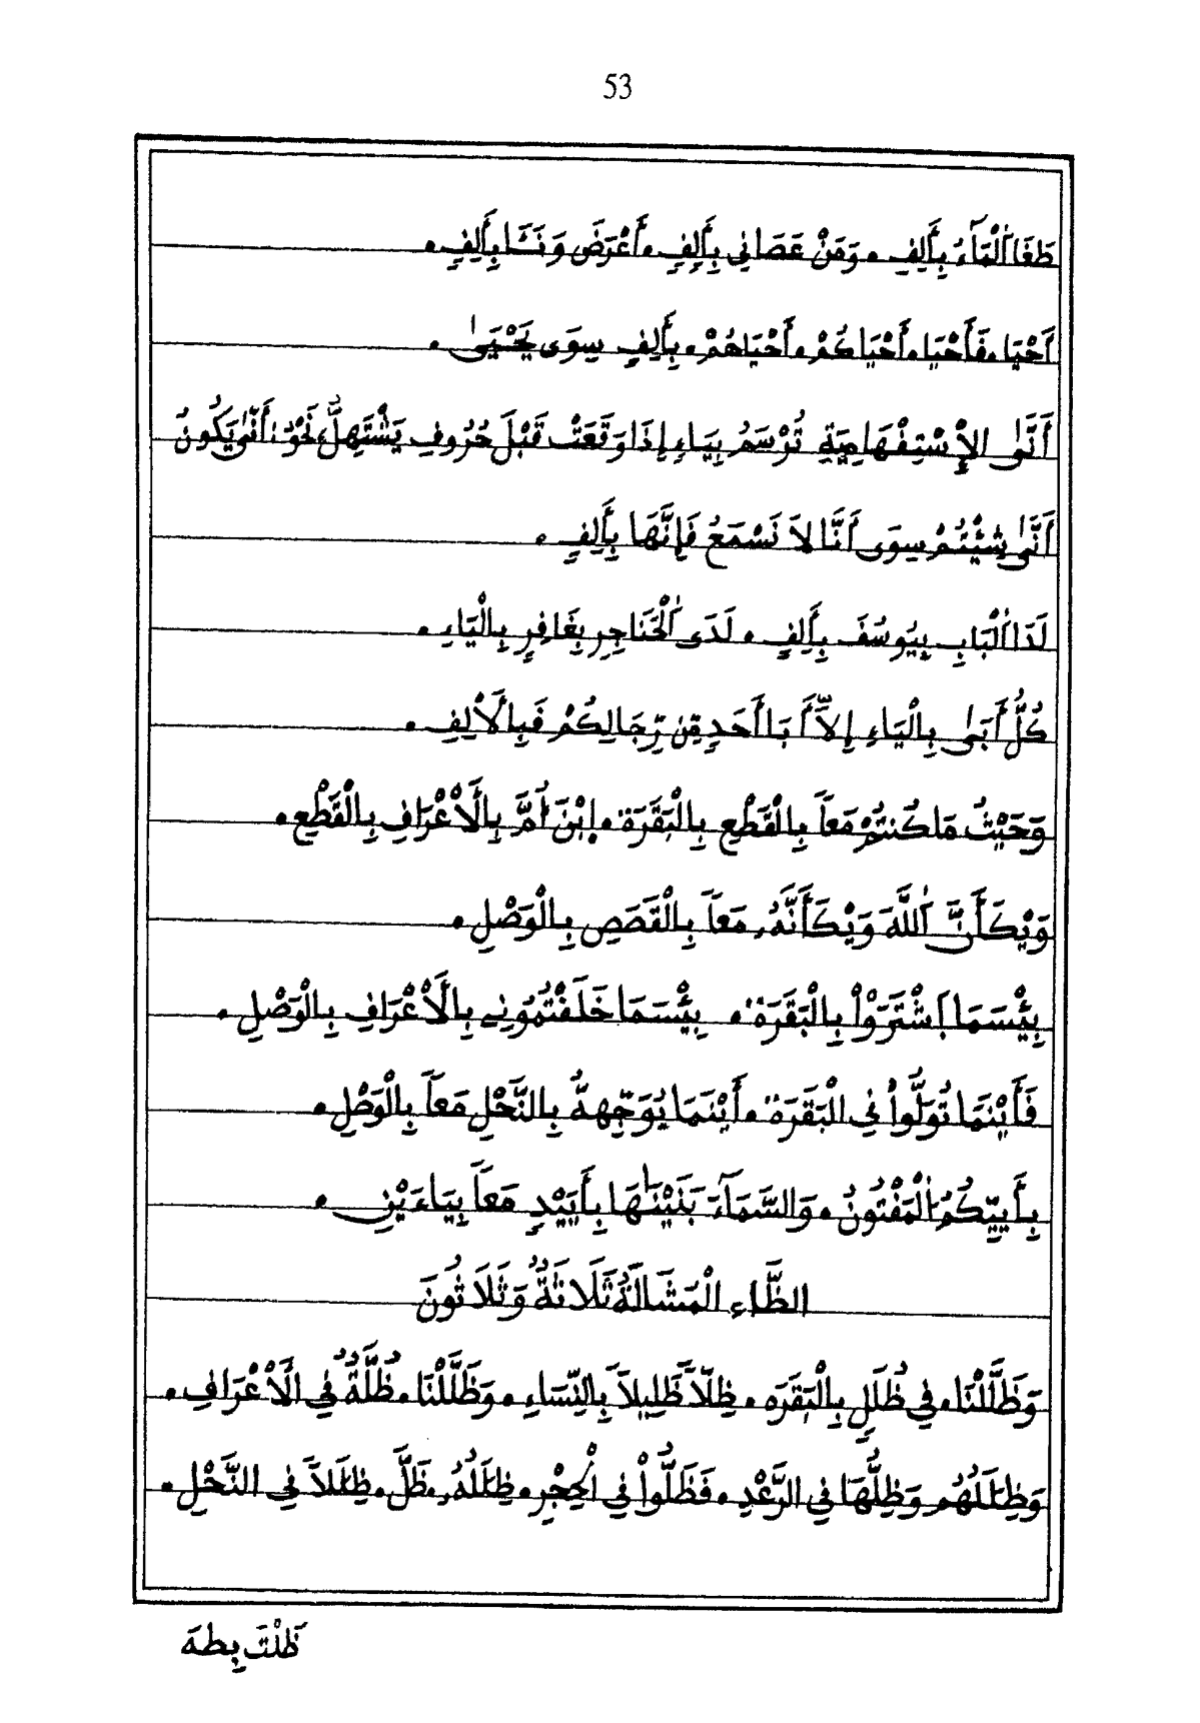 53
طَغَا اَ۬لْمَآءُ بِأَلِفٍ • وَمَنْ عَصَانِى بِأَلِفٍ • أَعْرَضَ وَنَـَٔا بِأَلِفٍ •
اَحْيَا • فَأَحْيَا • أَحْيَاكُمْ • أَحْيَاهُمْ • بِأَلِفٍ سِوَى يَحْيَىٰ •
أَنَّىٰ الاِسْتِفْهَامِيَةِ تُرْسَمُ بِيَاءٍ إِذَا وَقَعَتْ قَبْلَ حُرُوفِ يَشْتَهِلُّ نَحْوُ: أَنّىٰ يَكُونُ
أَنَّىٰ شِئْتُمْ سِوَى أَنَّا لاَ نَسْمَعُ فَإِنَّهَا بِأَلِفٍ •
لَدَا اَ۬لْبَابِ بِيُوسُفَ بِأَلِفٍ • لَدَى اَ۬لْحَنَاجِرِ بِغَافِرٍ بِالْيَاءِ •
كُلُّ أَبَىٰ بِالْيَاءِ إِلاَّ أَبَا أَحَدٍ مِّن رِّجَالِكُمْ فَبِالأَلِفِ •
وَحَيْثُ مَا كُنتُمْ مَعاً بِالْقَطْعِ بِالْبَقَرَةِ • اِبْنَ أُمَّ بِالأَعْرَافِ بِالْقَطْعِ •
وَيْكَأَنَّ اَ۬للَّهَ وَيْكَأَنَّهُۥ مَعاً بِالْقَصَصِ بِالْوَصْلِ •
بِئْسَمَا اَشْتَرَوْاْ بِالْبَقَرَةِ • بِئْسَمَا خَلَفْتُمُونِے بِالأَعْرَافِ بِالْوَصْلِ •
فَأَيْنَمَا تُوَلُّواْ فِي الْبَقَرَةِ • أَيْنَمَا يُوَجِّههُّ بِالنَّحْلِ مَعاً بِالْوَصْلِ •
بِأَييِّكُمُ اَ۬لْمَفْتُونُ • وَالسَّمَآءَ بَنَيْنَٰهَا بِأَيَيْدٍ مَعاً بِيَاءَيْنِ •
الظَّاءِ الْمَشَالَةُ ثَلَاثَةٌ وَثَلَاثُونَ
وَظَلَّلْنَا • فِي ظُلَلٍ بِالْبَقَرَه • ظِلّاً ظَلِيلاً بِالنِّسَاءِ • وَظَلَّلْنَا • ظُلَّةٌ فِي الأَعْرَافِ •
وَظِلَٰلُهُم وَظِلُّهَا فِي الرَّعْدِ • فَظَلُّواْ فِي الْحِجْرِ • ظِلَٰلُهُۥ • ظَلَّ • ظِلَٰلاً فِي النَّحْلِ •
ظَلْتَ بِطهَ